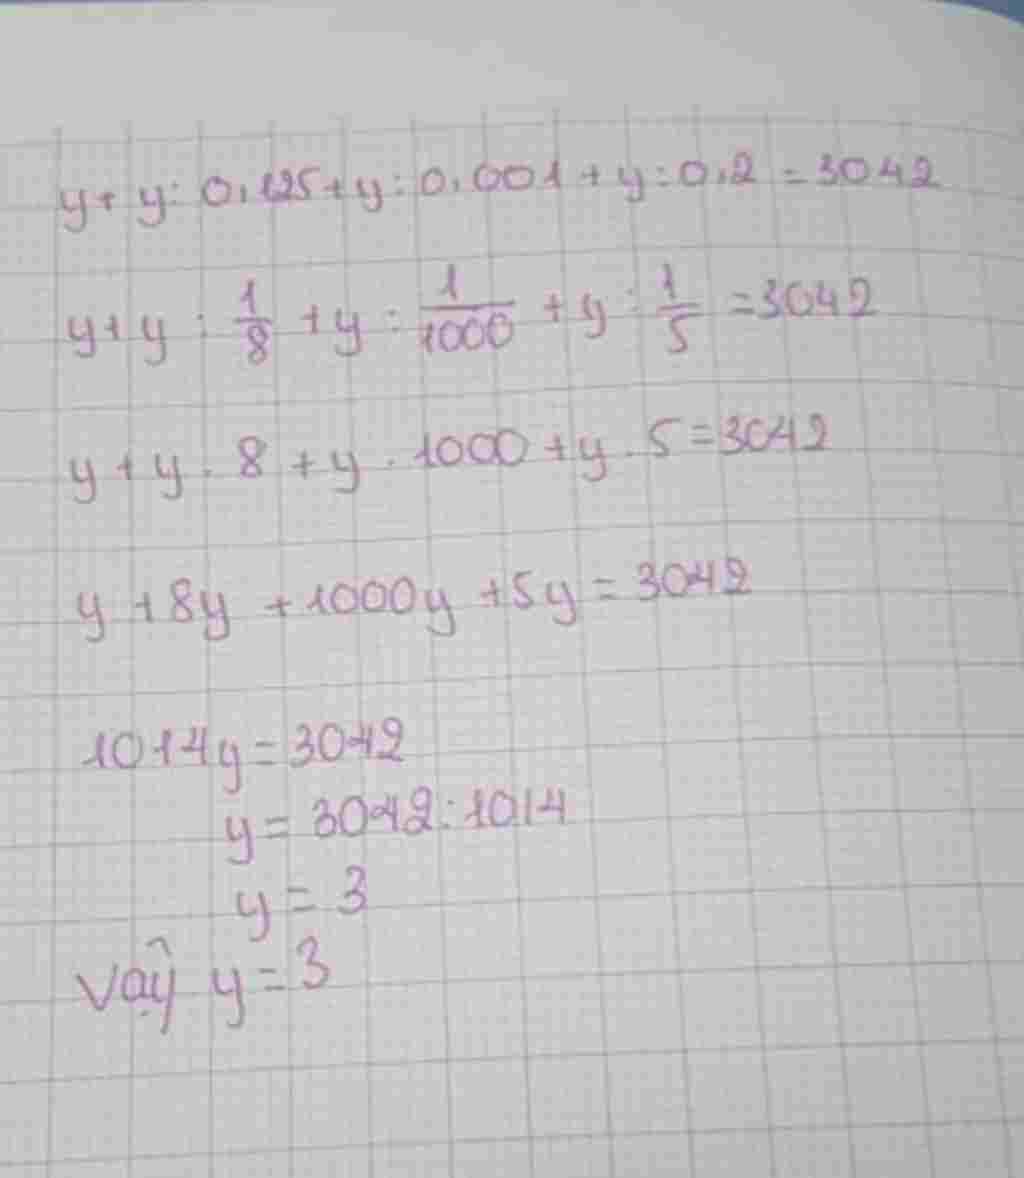 y + y : 0,125 + y : 0,001 + y : 0,2 = 3042
y + y : 1/8 + y : 1/1000 + y : 1/5 = 3042
y + y . 8 + y . 1000 + y . 5 = 3042
y + 8y + 1000y + 5y = 3042
1014y = 3042
y = 3042 : 1014
y = 3
Vậy y = 3